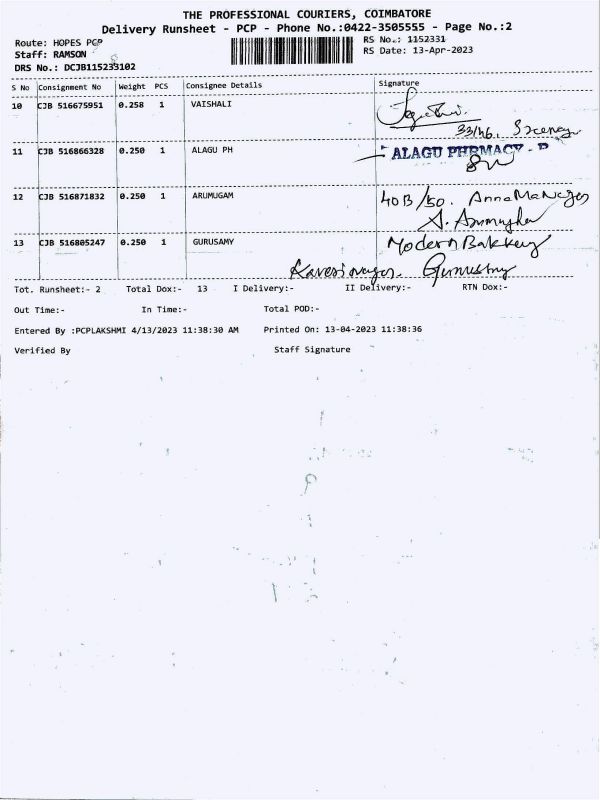 THE PROFESSIONAL COURIERS, COIMBATORE
Delivery Runsheet - PCP - Phone No.:0422-3505555 - Page No.:2
Route: HOPES PCP
RS No.: 1152331
Staff: RAMSON
RS Date: 13-Apr-2023
DRS No.: DCJB115233102
S No Consignment No Weight PCS Consignee Details Signature
10 CJB 516675951 0.258 1 VAISHALI
33/46.
11 CJB 516866328 0.250 1 ALAGU PH ALAGU PHRMACY - P
12 CJB 516871832 0.250 1 ARUMUGAM 40B/50. Anna
13 CJB 516805247 0.250 1 GURUSAMY Modern Bakkery
Tot. Runsheet:- 2 Total Dox:- 13 I Delivery:- II Delivery:- RTN Dox:-
Out Time:- In Time:- Total POD:-
Entered By :PCPLAKSHMI 4/13/2023 11:38:30 AM Printed On: 13-04-2023 11:38:36
Verified By Staff Signature